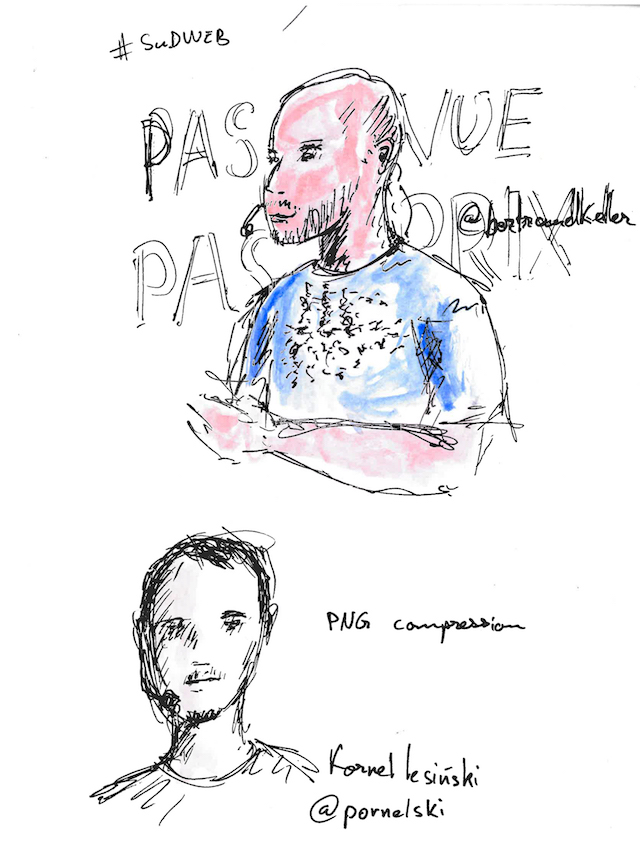 # SUDWEB
PAS VUE
@bertrandkeller
PAS PRIX
PNG compression
Kornel Lesiński
@pornelski